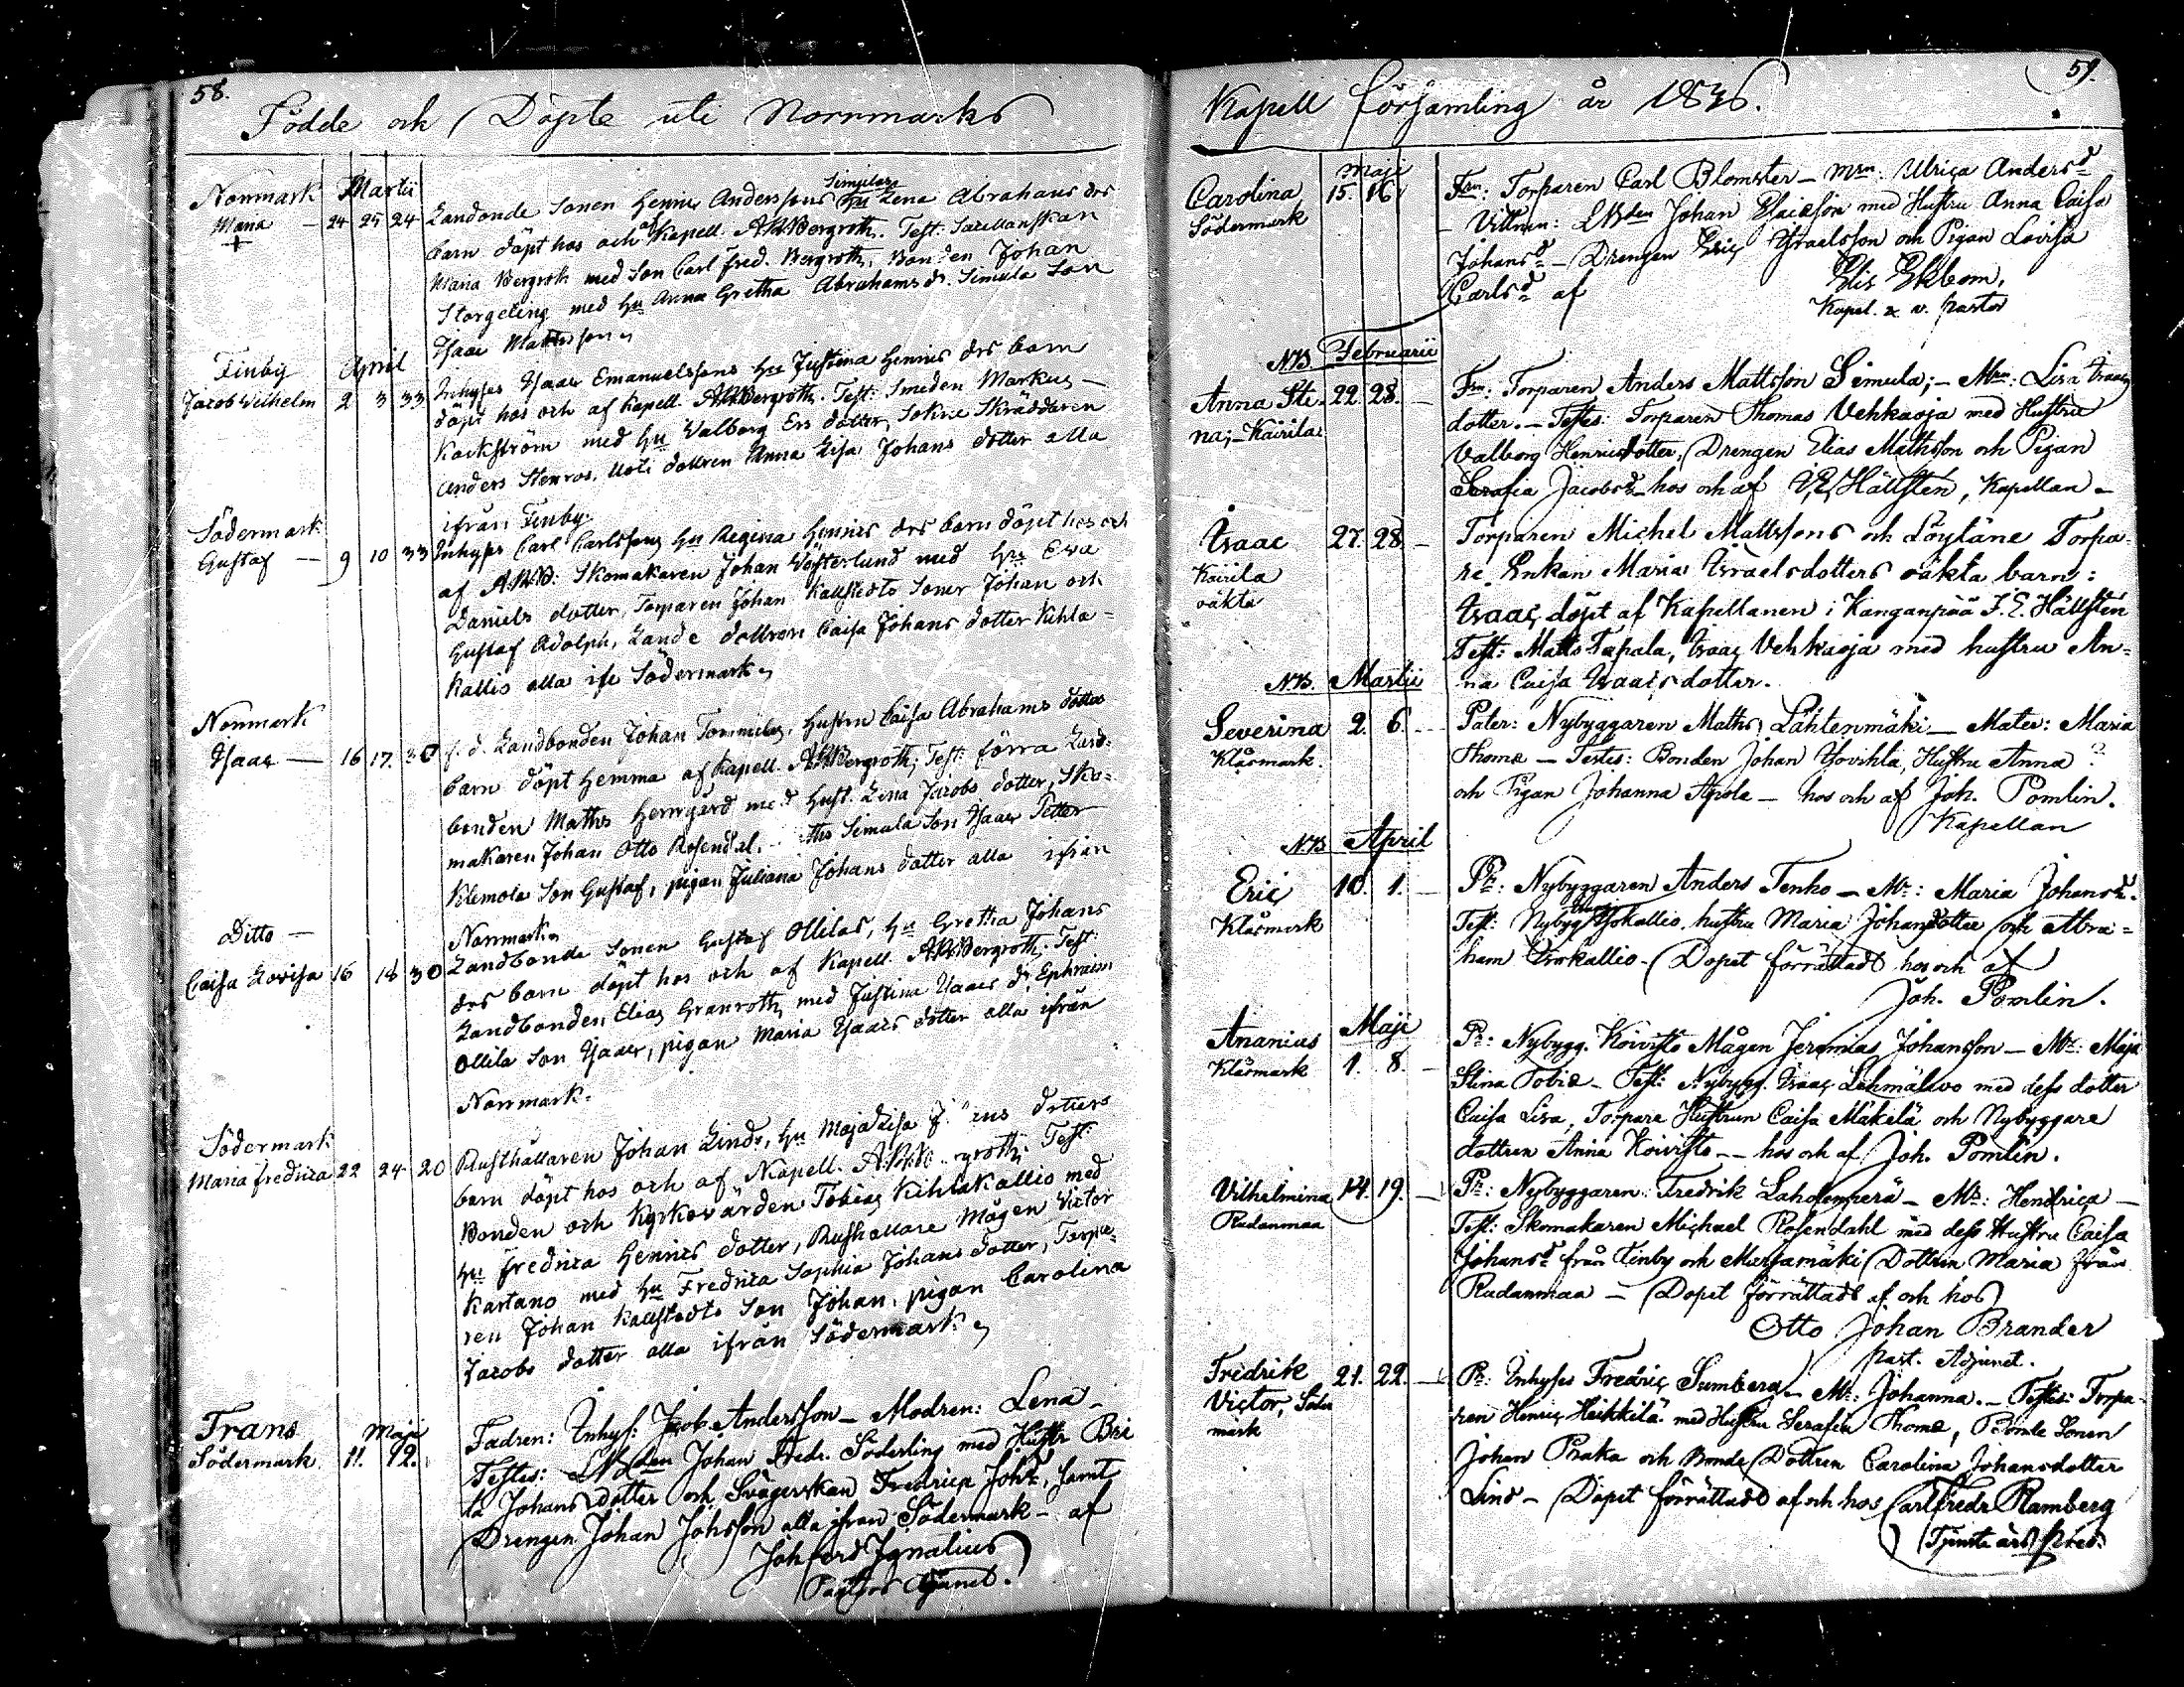 58.
Födde och Döpte uti Norrmarks
Norrmark Martii
Maria — 24 25 24 Landbonde Sonen Henric Anderssons Simpelas Hu Lena Abrahams drs
barn döpt hos och af Kapell. Bergroth. Test: Sacellanskan
Maria Bergroth med Son Carl Fred. Bergroth, Bonden Johan
Storgeling med Hu Anna Gretha Abrahamsdr. Simula Son
Isaac Mattsson
Finby April
Jacob Wilhelm 2 3 33 Inhyses Isaac Emanuelssons Hu Justina Henrics drs barn
döpt hos och af Kapell. Bergroth. Test: Smeden Markus
Kockström med Hu Walborg Ers dotter, Sokne Skräddaren
Anders Stenros, dottren Anna Lisa Johans dotter alla
ifrån Finby.
Södermark
Gustaf — 9 10 33 Inhyses Carl Carlssons Hu Regina Henrics drs barn döpt hos och
af A.W.B: Skomakaren Johan Wösterlund med Hu Eva
Daniels dotter, Torparen Johan Kallstedts Soner Johan och
Gustaf Adolph, Lande dottren Caisa Johans dotter Kihla=
kallio alla ifr Södermark
Norrmark
Isaac — 16 17. 30 f. d. Landbonden Johan Tommilas, Hustru Caisa Abrahams dotters
barn döpt hemma af Kapell. Bergroth; Test: förra Land=
bonden Matths Herrgård med Hust. Lena Jacobs dotter, Sko=
makaren Johan Otto Rosendal, Simula Son Isaac Petter
Klemola Son Gustaf, pigan Juliana Johans dotter alla ifrån
Norrmark
Ditto —
Caisa Lovisa 16 18 30 Landbonde Sonen Gustaf Ollilas, Hu Gretha Johans
drs barn döpt hos och af Kapell. Bergroth. Test:
Landbonden Elias Granroth med Justina Isaacs dr. Ephraim
Ollila Son Isaac, pigan Maria Isaacs dotter alla ifrån
Norrmark.
Södermark
Maria Fredrica 22 24 20 Rusthållaren Johan Linds, Hu Maja Lisa dotters
barn döpt hos och af Kapell. Test:
Bonden och Kyrkovärden Tobias Kihlakallio med
Hu Fredrica Henrics dotter, Rusthållare Mågen Victor
Kartano med Hu Fredrica Sophia Johans dotter, Torpa=
ren Johan Kallstedts Son Johan, pigan Carolina
Jacobs dotter alla ifrån Södermark
Frans Maji
Södermark. 11. 12. Fadren: Inhys: Jacob Andersson — Modren: Lena —
Testes: Johan Fredr. Söderling med Hustr Bri
ta Johans dotter och Svägerskan Fredrica Johd, samt
Drengen Johan Johsson alla ifran Södermark — af
Joh Ferd Ignatius
Pastors Adjunct.
59.
Kapell församling år 1836.
Maji
Carolina 15. 16. Frn: Torparen Carl Blomster — Mrn: Ulrica Andersd
Södermark — Vittnen: Johan Isaicsson med Hustru Anna Caisa
Johansd — Drengen Eric Israelsson och Pigan Lovisa
Carlsd af Elis Ekbom.
Kapel. & v. Pastor
NB Februarii
Anna Sti- 22. 28. — Frn: Torparen Anders Mattsson Simula; — Mrn: Lisa Isaacs
na; — Kairila dotter. — Testes: Torparen Thomas Vehkaoja med Hustru
Valborg Henricsdotter, Drengen Elias Mathsson och Pigan
Serafia Jacobsd — hos och af Hällsten, Kapellan —
Isaac 27. 28. — Torparen Michel Mattssons och Löytäne Torpa=
Kairila re. Enkan Maria Israelsdotters oäkta barn:
oäkta Isaac, döpt af Kapellanen i Kanganpää J. E. Hällsten
Test: Matts Tapala, Isaac Vehkaoja med hustru An=
NB. Martii na Caisa Isaacsdotter.
Severina 2. 6. — Pater: Nybyggaren Matths Lähtenmäki — Mater: Maria
Klåsmark. Thomæ — Testes: Bonden Johan Yovihla, Hustru Anna ?
och Pigan Johanna Apola — hos och af Joh. Pomlin.
Kapellan
NB April
Eric 10. 1. — Pr: Nybyggaren Anders Tenho — Mr: Maria Johansd.
Klåsmark Test: Nybygg Isokallio, hustru Maria Johansdotter och Abra=
ham Isokallio — Dopet förrättadt hos och af
Joh. Pomlin.
Ananius Maji
Klåsmark 1. 8. — Pr: Nybygg. Koivisto Mågen Jeremias Johansson — Mr: Maja
Stina Tobiæ — Test: Nybygg. Isaac Lehmälwo med dess dotter
Caisa Lisa, Torpare Hustrun Caisa Mäkelä och Nybyggare
dottren Anna Koivisto — hos och af Joh. Pomlin.
Vilhelmina 14. 19. — Pr: Nybyggaren: Fredrik Lahdenperä — Mr: Hendrica —
Rudanmaa Test: Skomakaren Michael Rosendahl med dess Hustru Caisa
Johansd från Finby och Myrsämäki Dottren Maria från
Rudanmaa — Dopet förrättadt af och hos
Otto Johan Brander
past. Adjunct.
Fredrik 21. 22. — Pr: Inhyses Fredric Sumberg — Mr: Johanna. — Testes: Torpa-
Victor, Söder ren Henric Heikkilä med Hustru Serafia Thomæ, Bonde Sonen
mark Johan Praka och Bonde Dottren Carolina Johansdotter
Lind — Dopet förrättadt af och hos Carl Fredr Ramberg
Tjenste års Pred.